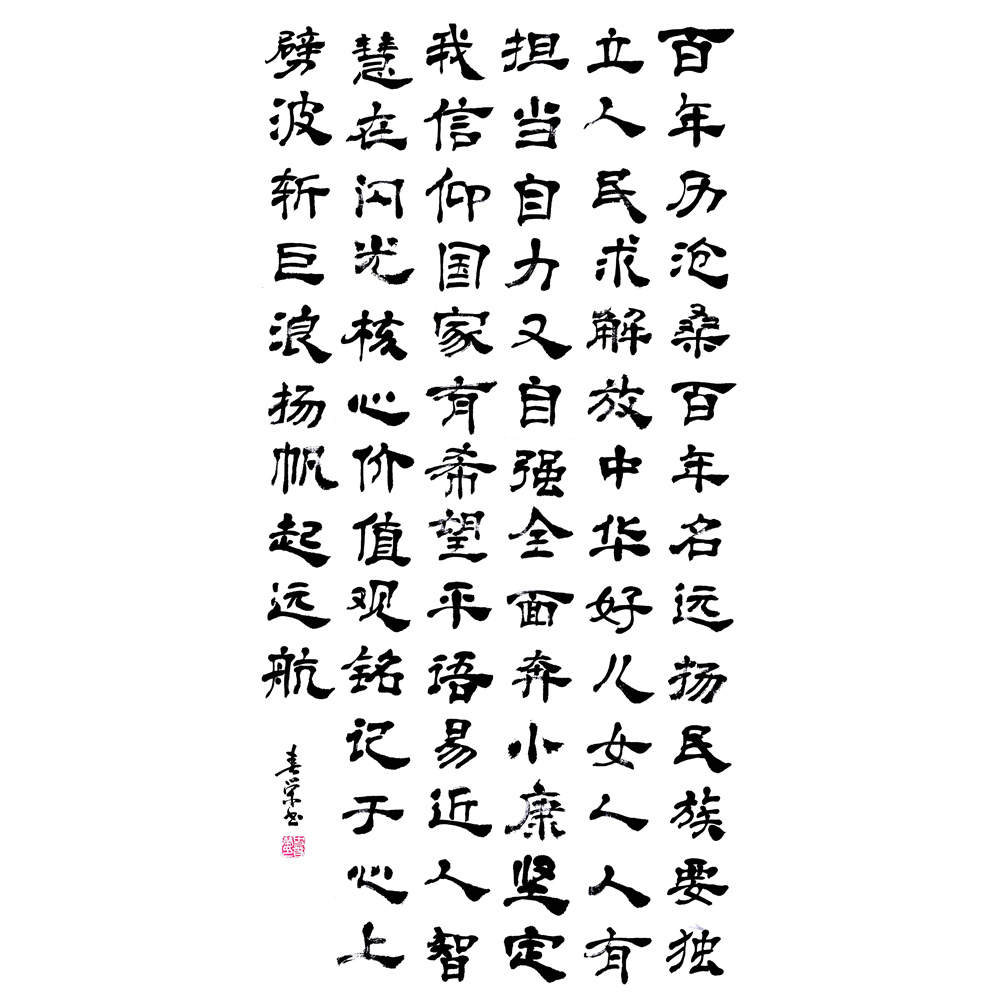 百年历沧桑百年名远扬民族要独
立人民求解放中华好儿女人人有
担当自力又自强全面奔小康坚定
我信仰国家有希望平语易近人智
慧在闪光核心价值观铭记于心上
劈波斩巨浪扬帆起远航
春荣书